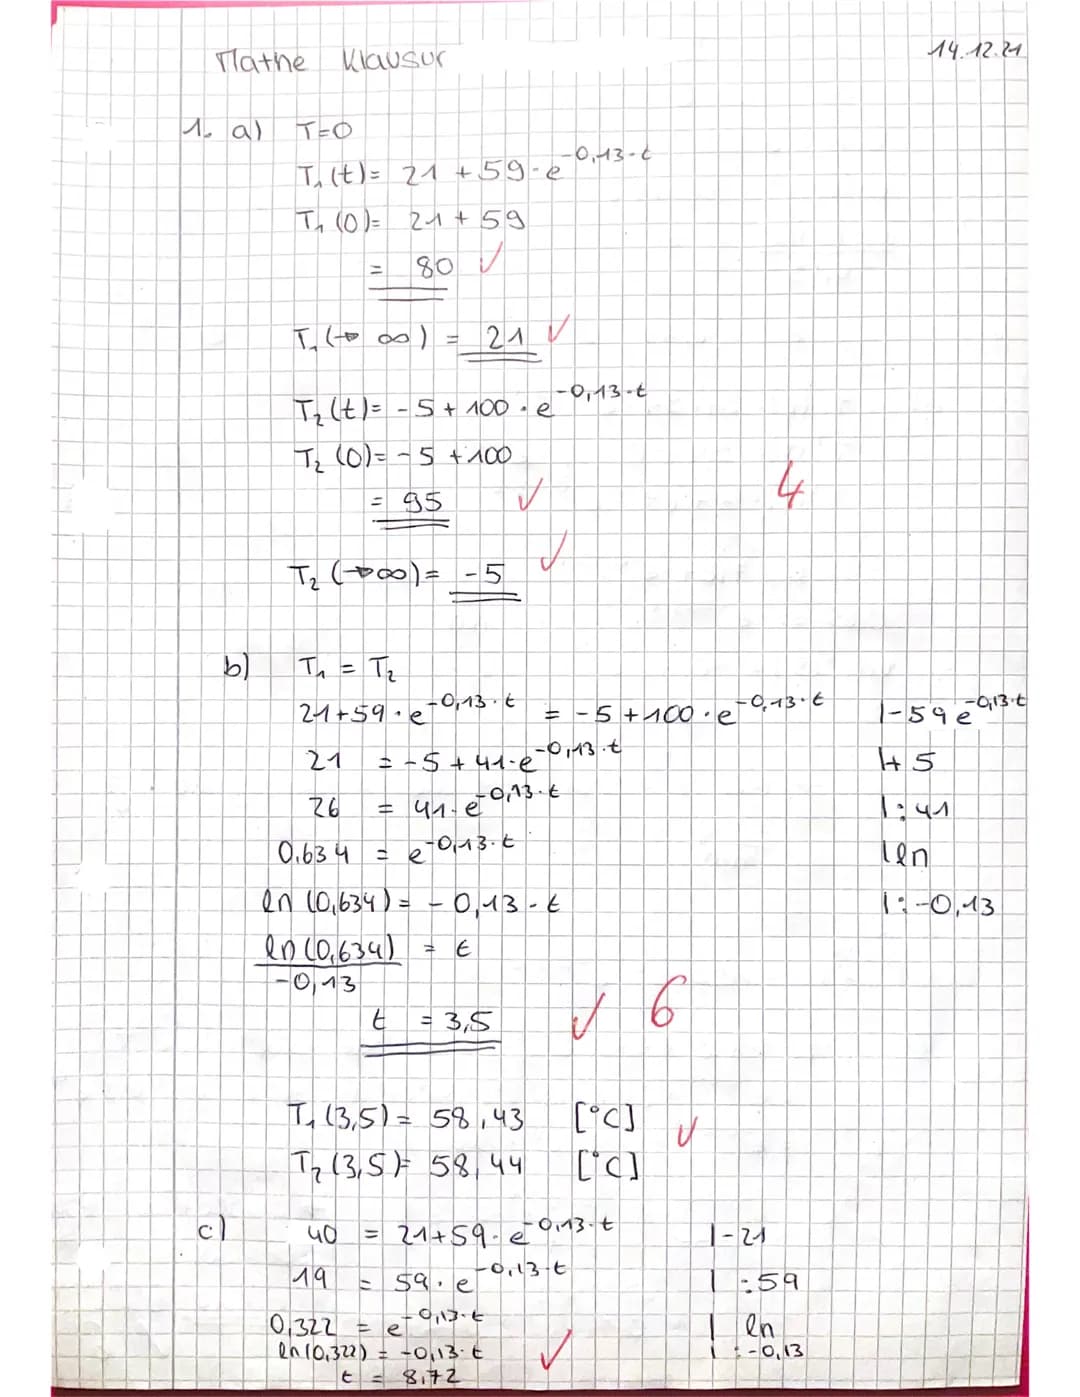 Mathe Klausur
14.12.21
1. a) T=0
T₁(t)= 21 + 59·e^-0,13·t
T₁(0)= 21 + 59
= 80 ✓
T₁(→ ∞) = 21 ✓
T₂(t)= -5 + 100 · e^-0,13·t
T₂(0)= -5 + 100
= 95 ✓
4
T₂(→∞)= -5 ✓
b) T₁ = T₂
21+59·e^-0,13·t = -5+100·e^-0,13·t |-59e^-0,13·t
21 = -5 + 41·e^-0,13·t |+5
26 = 41·e^-0,13·t |:41
0,634 = e^-0,13·t |ln
ln (0,634) = -0,13·t |:-0,13
ln (0,634) = t
-0,13
t = 3,5 ✓ 6
T₁(3,5) = 58,43 [°C] ✓
T₂(3,5)= 58,44 [°C]
c) 40 = 21+59·e^-0,13·t |-21
19 = 59·e^-0,13·t | :59
0,322 = e^-0,13·t | ln
ln(0,322) = -0,13·t ✓ | :-0,13
t = 8,72